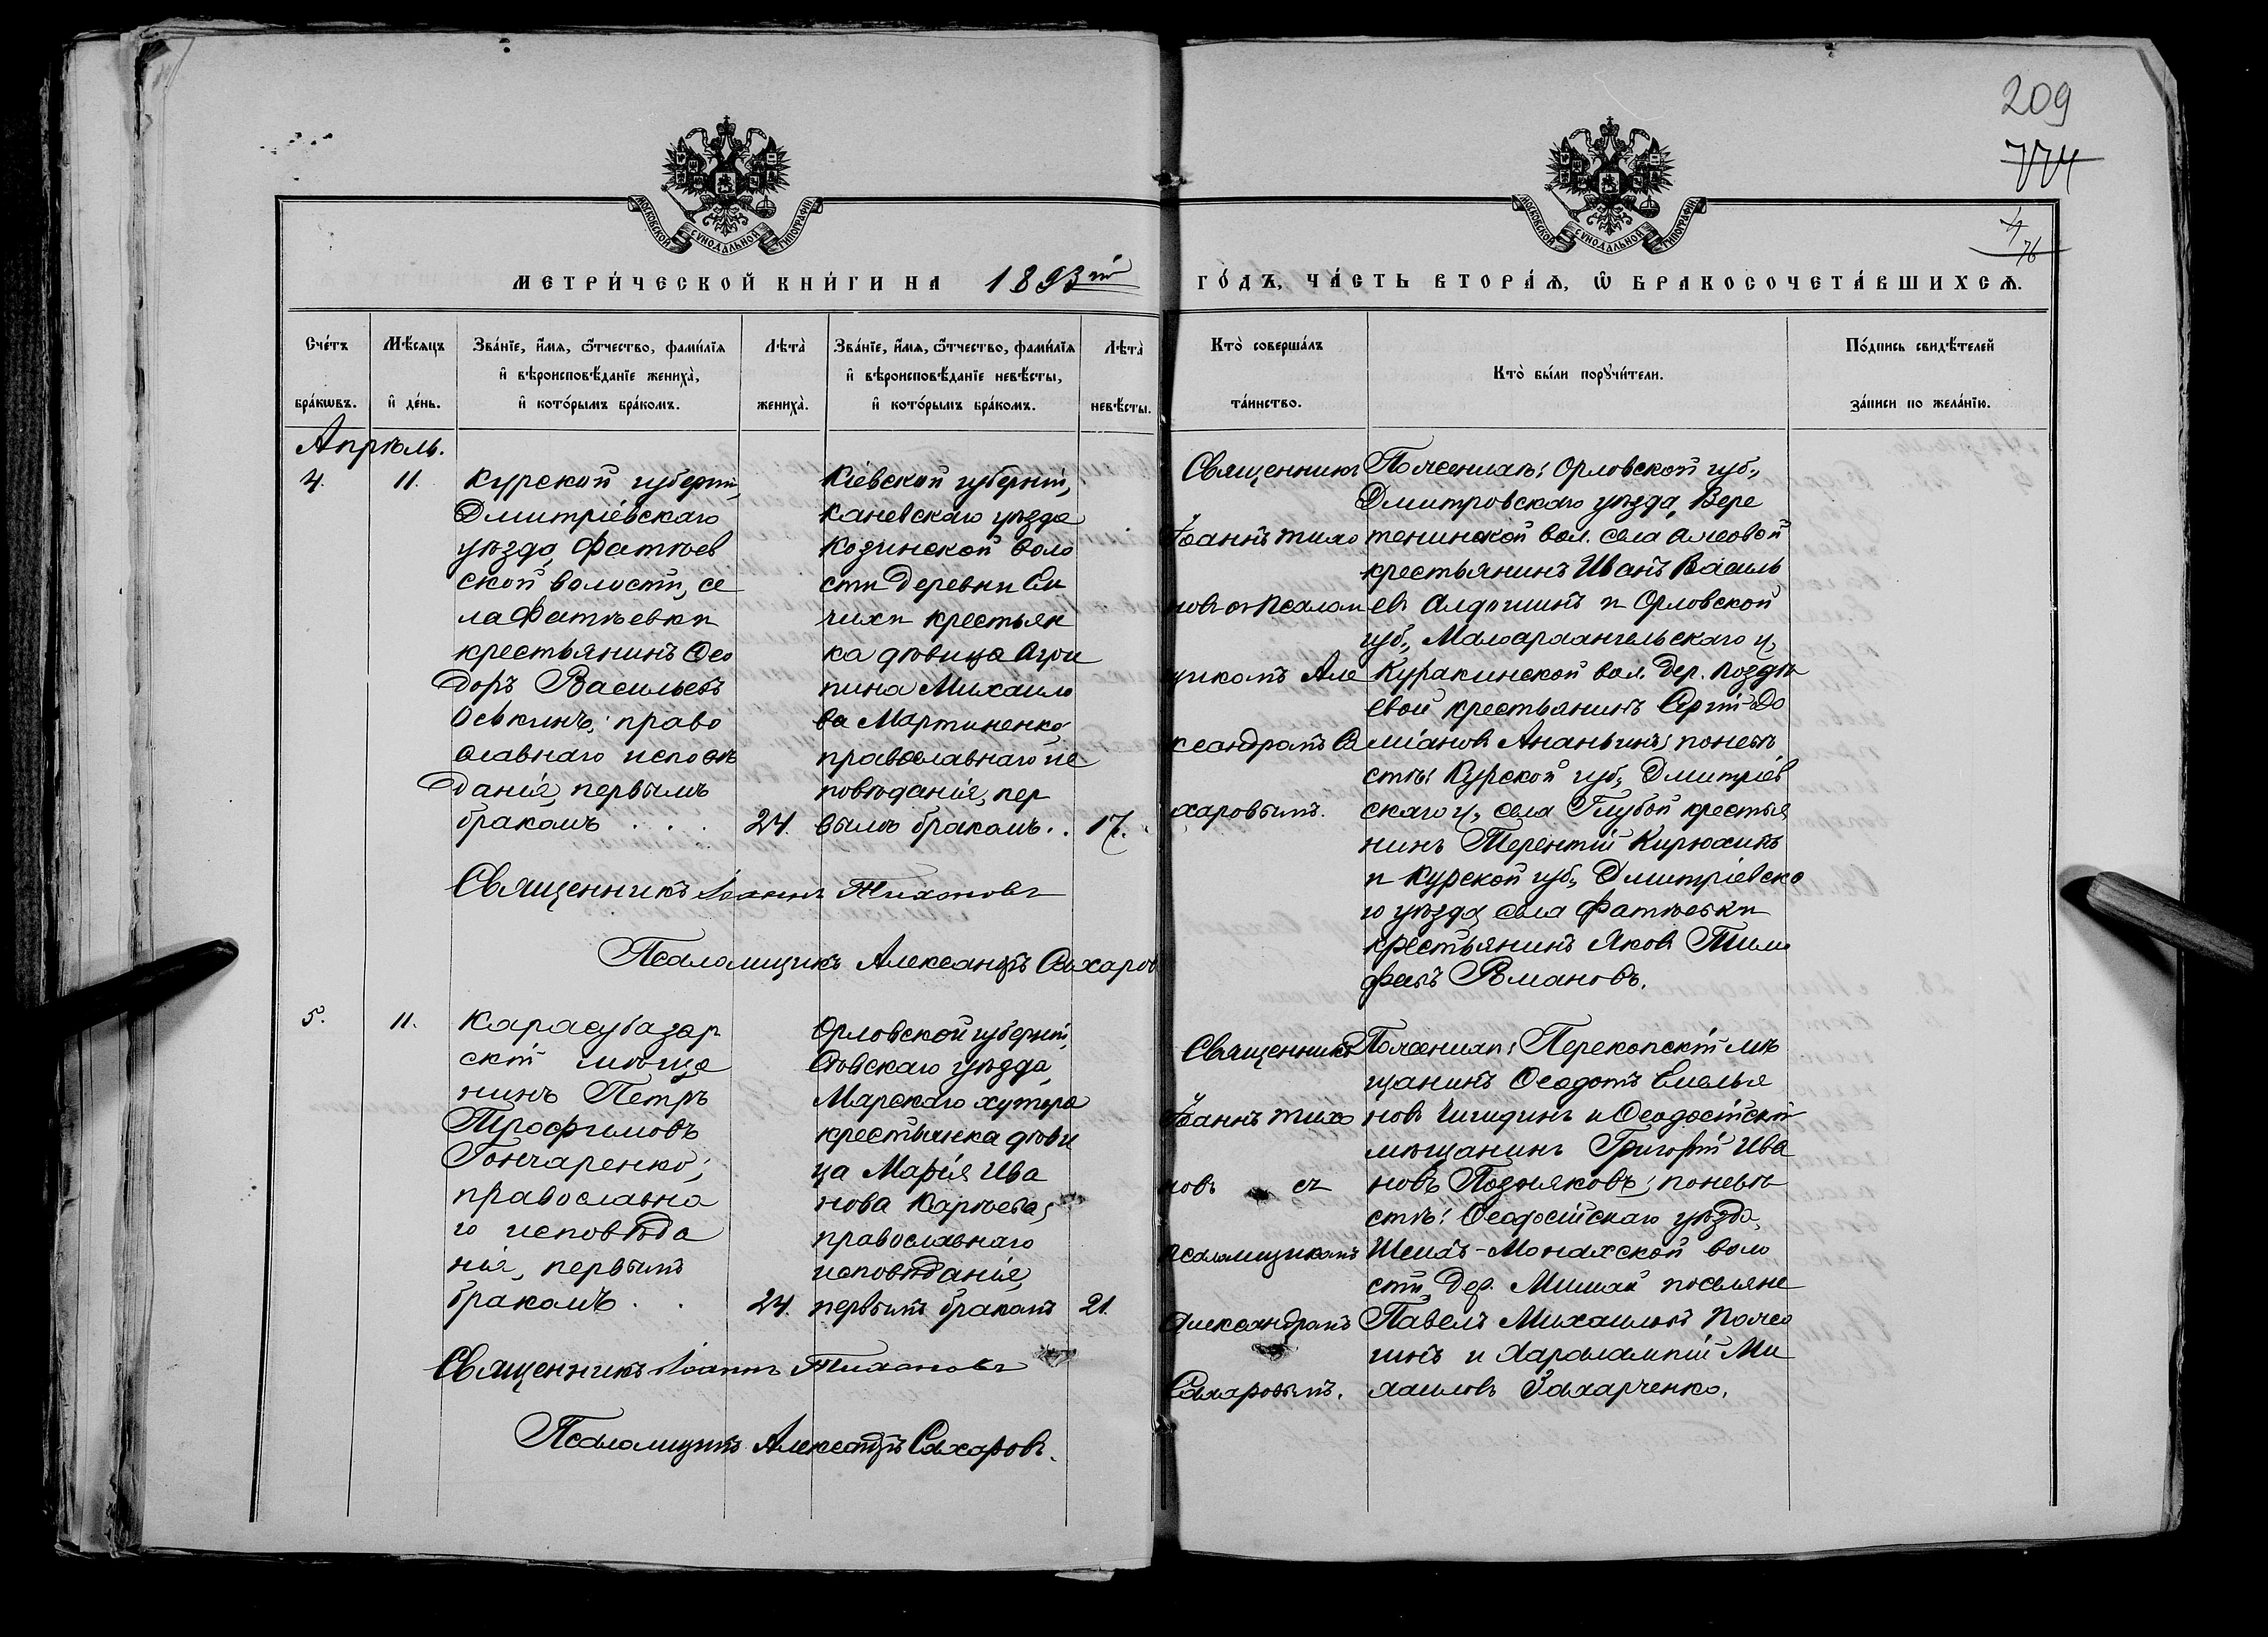 209
774
МОСКОВСКОЙ СѴНОДАЛЬНОЙ ТИПОГРАФІИ
МОСКОВСКОЙ СѴНОДАЛЬНОЙ ТИПОГРАФІИ
МЕТРИ́ЧЕСКОЙ КНИ́ГИ НА 1893 й
ГО́ДЪ, ЧА́СТЬ ВТОРА́Ѧ, Ѡ҆ БРАКОСОЧЕТА́ВШИХСѦ.
Сче́тъ
бра́кѡвъ.
Мѣ́сяцъ
и҆ де́нь.
Зва́нїе, и҆́мѧ, ѻ҆́тчество, фами́лїѧ
и҆ вѣроисповѣ́данїе жениха̀,
и҆ кото́рымъ бра́комъ.
Лѣта̀
жениха̀.
Зва́нїе, и҆́мѧ, ѻ҆́тчество, фами́лїѧ
и҆ вѣроисповѣ́данїе невѣ́сты,
и҆ кото́рымъ бра́комъ.
Лѣта̀
невѣ́сты.
Кто̀ соверша́лъ
та́инство.
Кто̀ бы́ли порꙋчи́тели.
По́дпись свидѣ́телей
за́писи по жела́нїю.
Апрѣль.
4.
11.
Курской губерніи,
Дмитріевскаго
уѣзда, Фатѣев
ской волости, се
ла Фатѣевки
крестьянинъ Ѳео
доръ Васильевъ
Оськинъ; право
славнаго исповѣ
данія, первымъ
бракомъ . . .
24.
Кіевской губерніи,
Каневскаго уѣзда
Козинской воло
сти деревни Си
чихи крестьян
ка дѣвица Агри
пина Михаило
ва Мартиненко,
православнаго ис
повѣданія, пер
вымъ бракомъ . .
17.
Священникъ
Іоаннъ Тихо
новъ съ псалом
щикомъ Але
ксандромъ Са
харовымъ.
По женихѣ: Орловской губ.,
Дмитровскаго уѣзда, Вере
тенинской вол. села
крестьянинъ Иванъ Василь
евъ Алдошинъ и Орловской
губ., Малоархангельскаго у.,
Куракинской вол. дер. Поздѣ
евой крестьянинъ До
міановъ Ананьинъ; по невѣ
стѣ: Курской губ., Дмитріев
скаго у., села крестья
нинъ Терентій Кирюхинъ
и Курской губ., Дмитріевска
го уѣзда, села Фатѣевки
крестьянинъ Яковъ Тимо
феевъ Романовъ.
Священникъ Іоаннъ Тихоновъ
Псаломщикъ Александръ Сахаровъ
5.
11.
Карасубазар
скій мѣща
нинъ Петръ
Трофимовъ
Гончаренко;
православна
го исповѣда
нія, первымъ
бракомъ . .
24.
Орловской губерніи,
Сѣвскаго уѣзда,
Марскаго хутора
крестьянка дѣви
ца Марія Ива
нова Карпѣева;
православнаго
исповѣданія,
первымъ бракомъ
21.
Священникъ
Іоаннъ Тихо
новъ съ
псаломщикомъ
Александромъ
Сахаровымъ.
По женихѣ: Перекопскій мѣ
щанинъ Ѳеодотъ Емелья
новъ Чигидинъ и Ѳеодосійскій
мѣщанинъ Григорій Ива
новъ Поздняковъ; по невѣ
стѣ: Ѳеодосійскаго уѣзда,
Шейхъ-Монахской воло
сти, дер. поселяне
Павелъ Михаиловъ
и Харалампій Ми
хаиловъ Захарченко.
Священникъ Іоаннъ Тихоновъ
Псаломщикъ Александръ Сахаровъ.